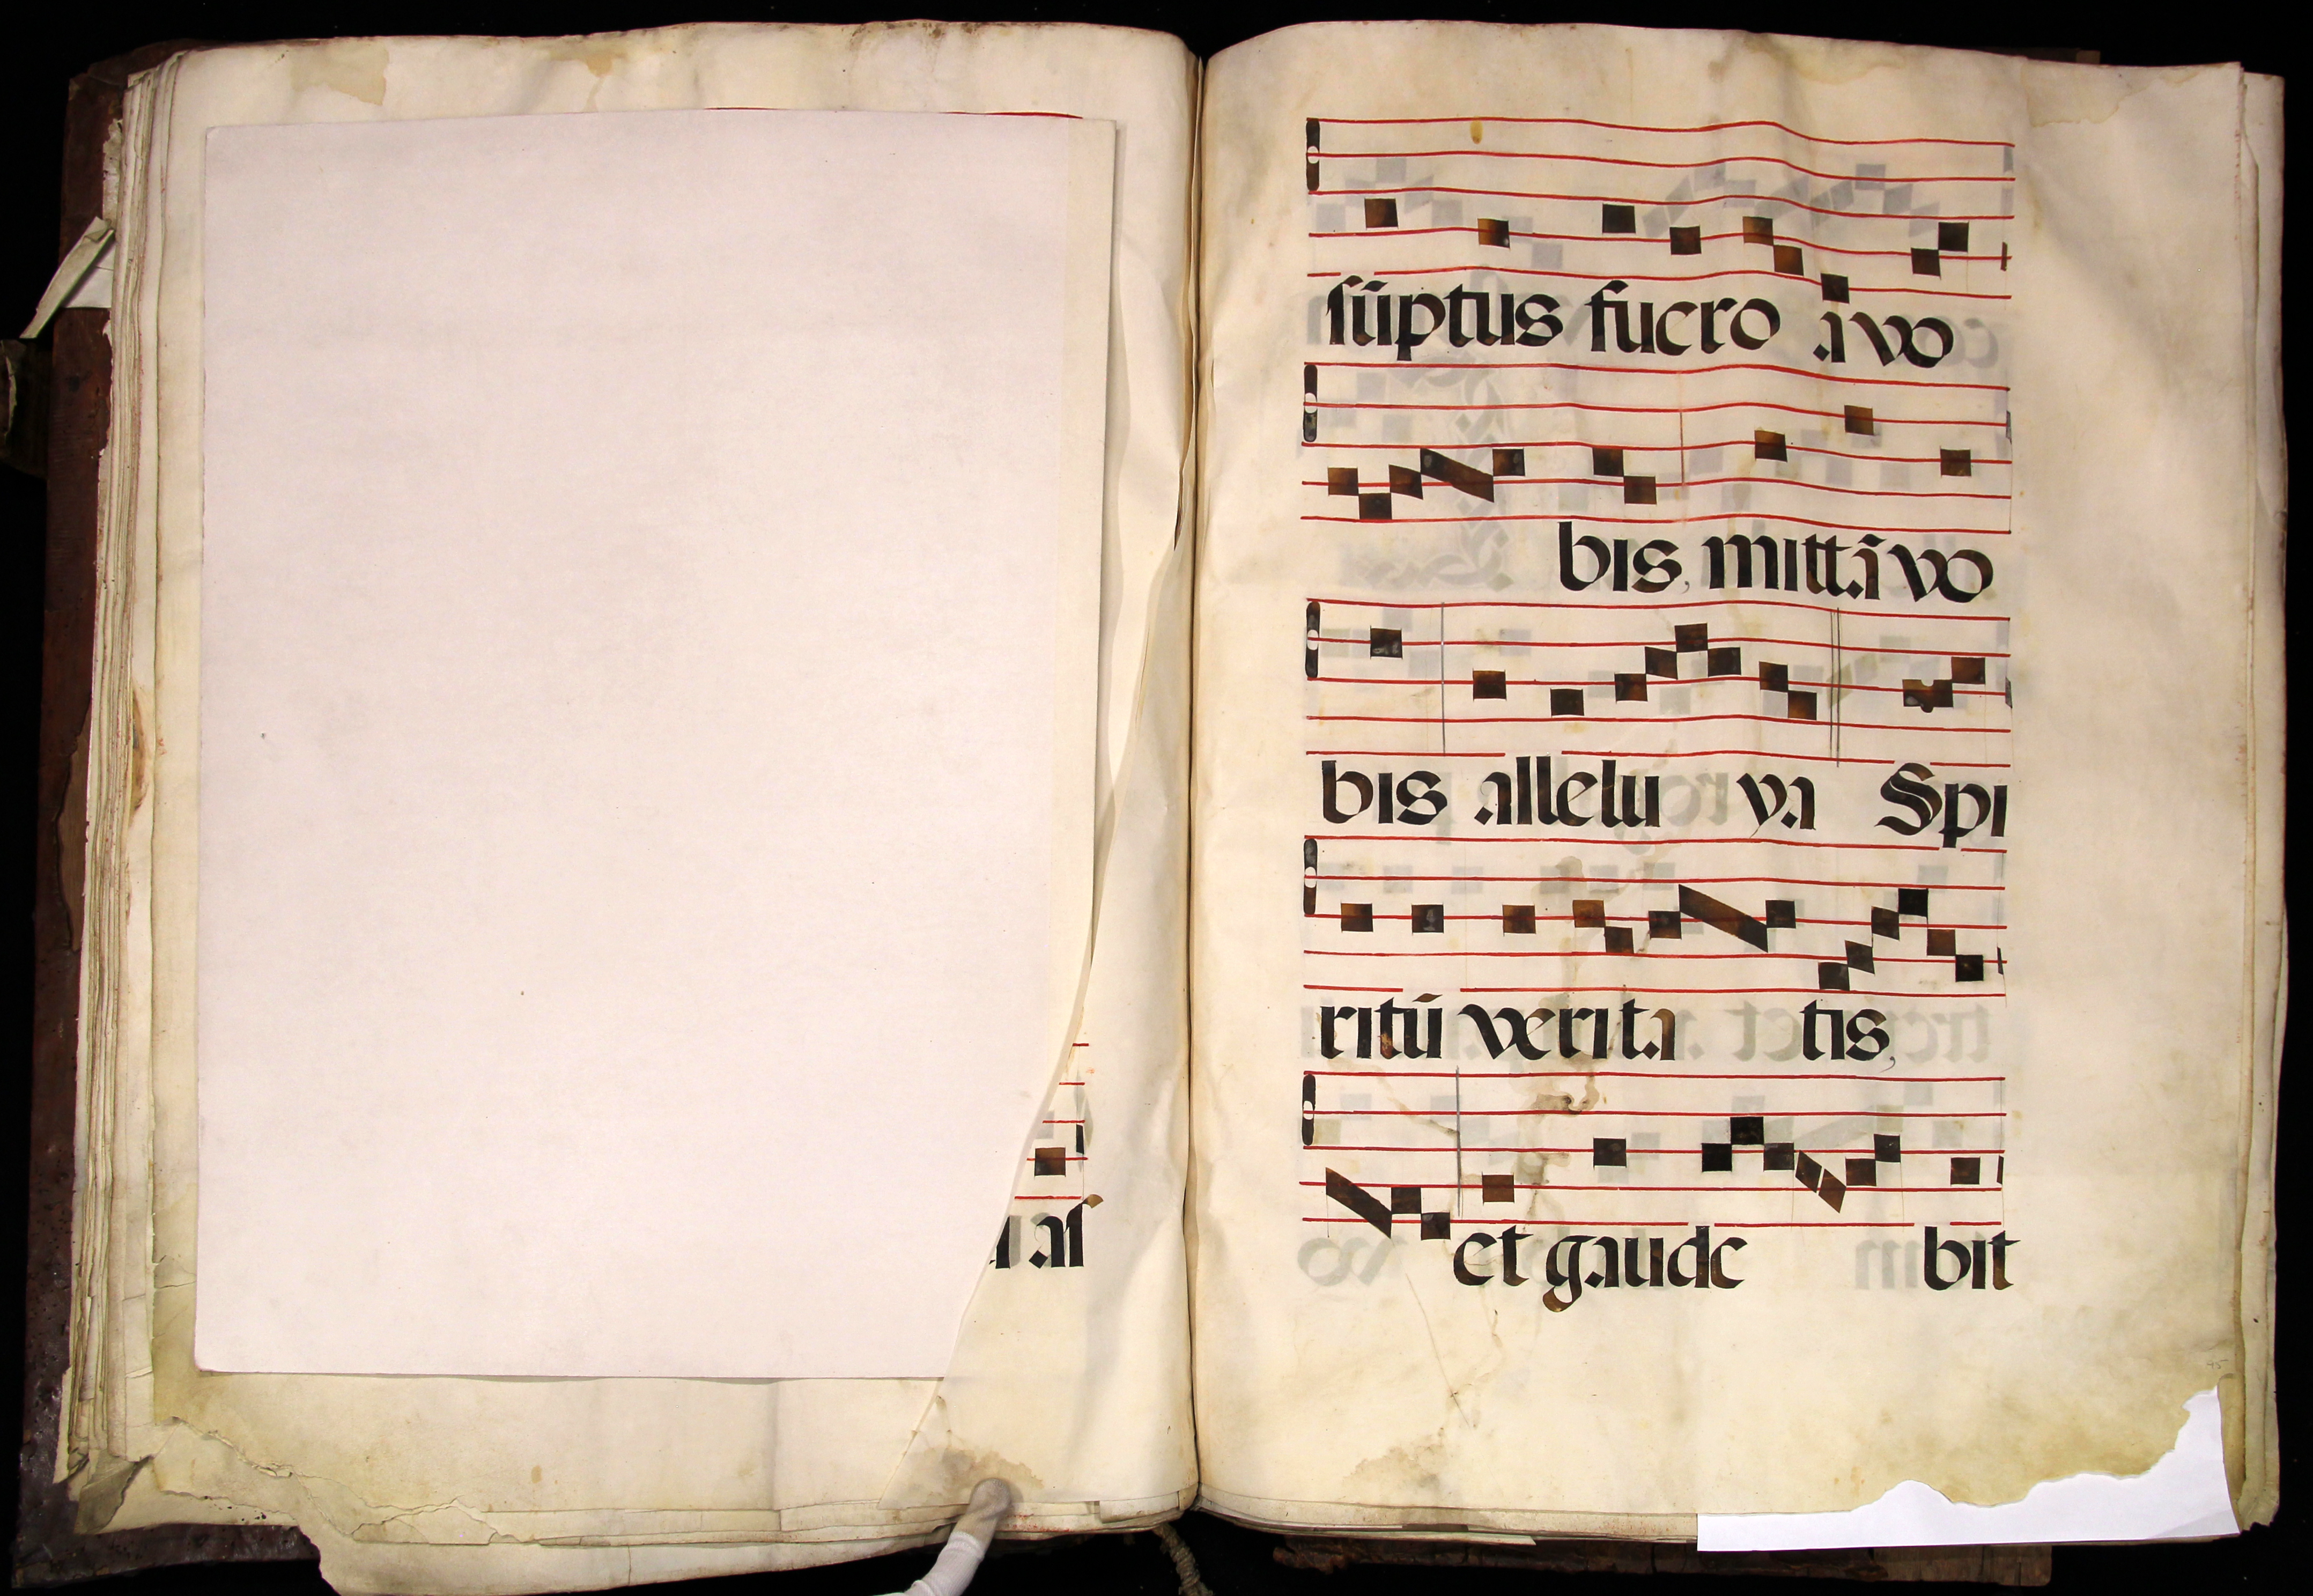 as
sūptus fuero a vo
bis, mittā vo
bis alleluya Spi
ritū verita tis,
et gaude bit
45